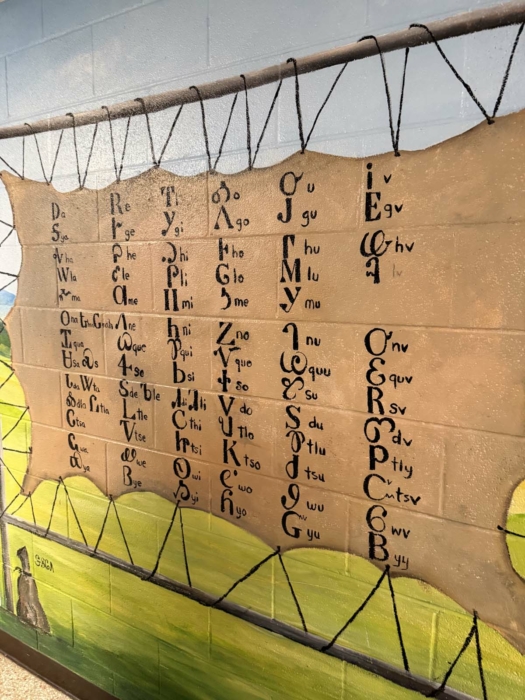 Ꭰa Ꭱe Ꭲi Ꭳo Ꭴu Ꭵv
Ꭶga Ꭸge Ꭹgi Ꭺgo Ꭻgu Ꭼgv
Ꭽha Ꭾhe Ꭿhi Ꮀho Ꮁhu Ꮂhv
Ꮃla Ꮄle Ꮅli Ꮆlo Ꮇlu Ꮈlv
Ꮉma Ꮊme Ꮋmi Ꮌmo Ꮍmu
Ꮎna Ꮏhna Ꮐnah Ꮑne Ꮒni Ꮓno Ꮔnu Ꮕnv
Ꮖqua Ꮗque Ꮘqui Ꮙquo Ꮚquu Ꮛquv
Ꮜsa Ꮝs Ꮞse Ꮟsi Ꮠso Ꮡsu Ꮢsv
Ꮣda Ꮤta Ꮥde Ꮦte Ꮧdi Ꮨti Ꮩdo Ꮪdu Ꮫdv
Ꮬdla Ꮭtla Ꮮtle Ꮯtli Ꮰtlo Ꮱtlu Ꮲtlv
Ꮳtsa Ꮴtse Ꮵtsi Ꮶtso Ꮷtsu Ꮸtsv
Ꮹwa Ꮺwe Ꮻwi Ꮼwo Ꮽwu Ꮾwv
Ꮿya Ᏸye Ᏹyi Ᏺyo Ᏻyu Ᏼyv